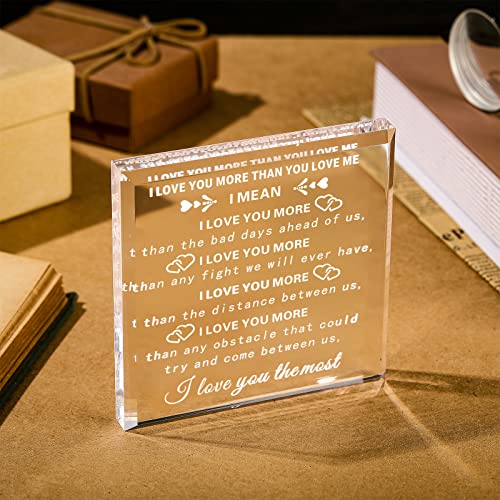 I LOVE YOU MORE THAN YOU LOVE ME
I LOVE YOU MORE THAN YOU LOVE ME
I MEAN
I LOVE YOU MORE
t than the bad days ahead of us,
I LOVE YOU MORE
than any fight we will ever have.
I LOVE YOU MORE
t than the distance between us,
I LOVE YOU MORE
t than any obstacle that could
try and come between us,
I love you the most